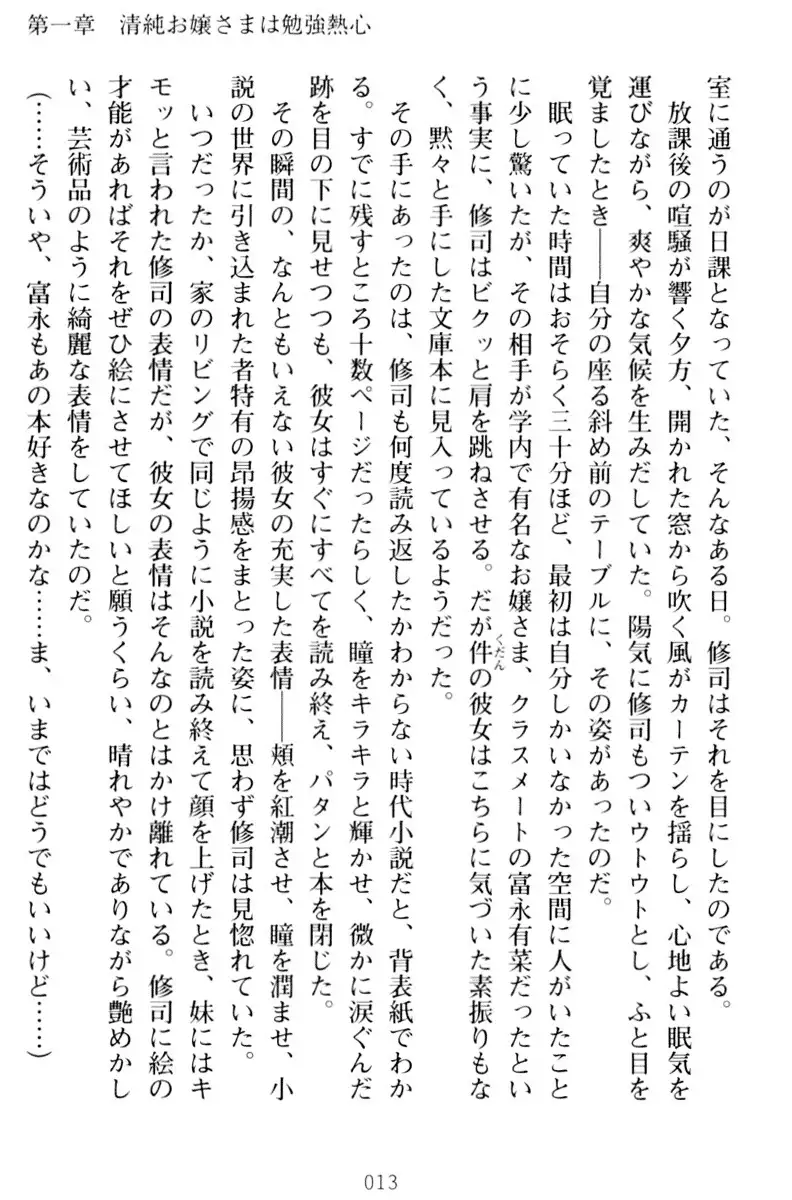 第一章　清純お嬢さまは勉強熱心
室に通うのが日課となっていた、そんなある日。修司はそれを目にしたのである。
　放課後の喧騒が響く夕方、開かれた窓から吹く風がカーテンを揺らし、心地よい眠気を
運びながら、爽やかな気候を生みだしていた。陽気に修司もついウトウトとし、ふと目を
覚ましたとき――自分の座る斜め前のテーブルに、その姿があったのだ。
　眠っていた時間はおそらく三十分ほど、最初は自分しかいなかった空間に人がいたこと
に少し驚いたが、その相手が学内で有名なお嬢さま、クラスメートの富永有菜だったとい
う事実に、修司はビクッと肩を跳ねさせる。だが件の彼女はこちらに気づいた素振りもな
く、黙々と手にした文庫本に見入っているようだった。
　その手にあったのは、修司も何度読み返したかわからない時代小説だと、背表紙でわか
る。すでに残すところ十数ページだったらしく、瞳をキラキラと輝かせ、微かに涙ぐんだ
跡を目の下に見せつつも、彼女はすぐにすべてを読み終え、パタンと本を閉じた。
　その瞬間の、なんともいえない彼女の充実した表情――頬を紅潮させ、瞳を潤ませ、小
説の世界に引き込まれた者特有の昂揚感をまとった姿に、思わず修司は見惚れていた。
　いつだったか、家のリビングで同じように小説を読み終えて顔を上げたとき、妹にはキ
モッと言われた修司の表情だが、彼女の表情はそんなのとはかけ離れている。修司に絵の
才能があればそれをぜひ絵にさせてほしいと願うくらい、晴れやかでありながら艶めかし
い、芸術品のように綺麗な表情をしていたのだ。
（……そういや、富永もあの本好きなのかな……ま、いまではどうでもいいけど……）
くだん
013